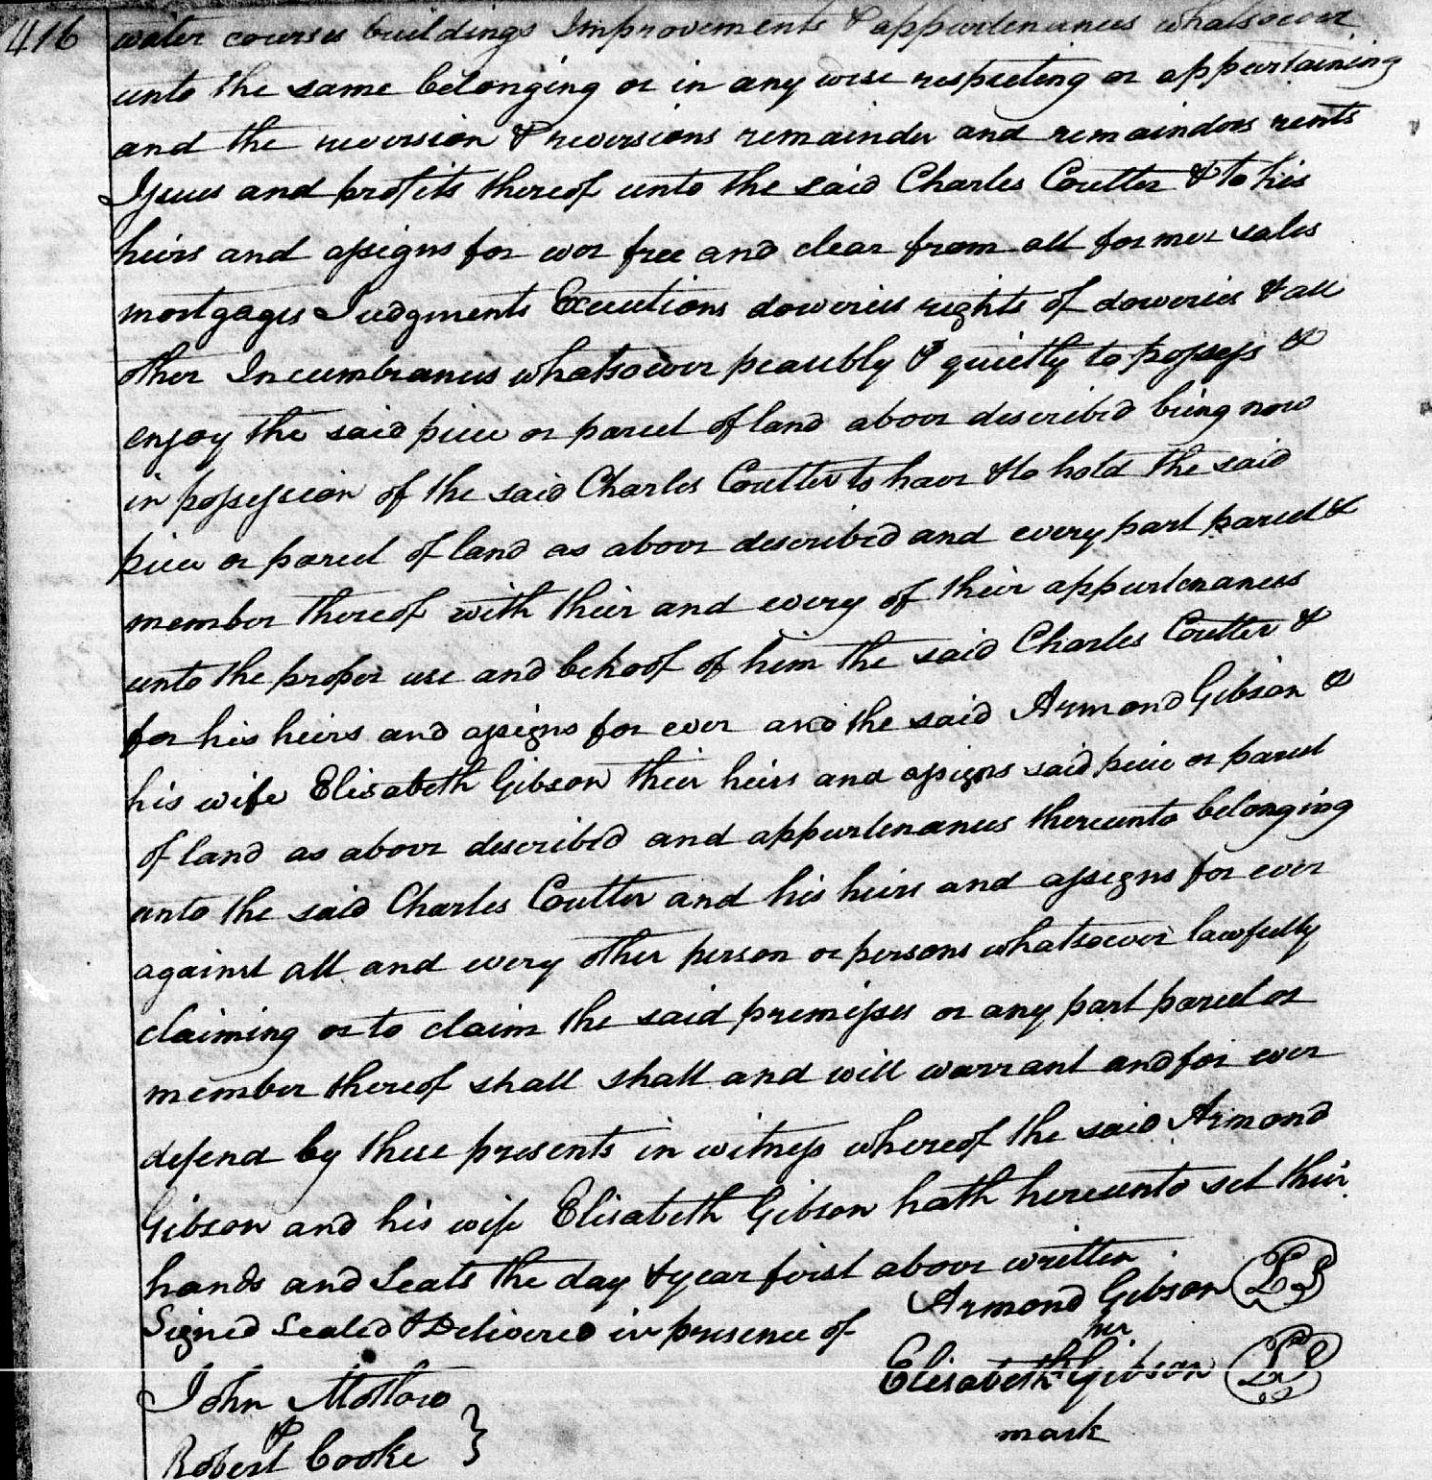 416
water courses buildings Improvements & appurtenances whatsoever
unto the same belonging or in any wise respecting or appertaining
and the reversion & reversions remainder and remainders rents
Issues and profits thereof unto the said Charles Coutter & to his
heirs and assigns for ever free and clear from all former sales
mortgages Judgments Executions doweries rights of doweries & all
other Incumbrances whatsoever peaceably & quietly to possess &
enjoy the said piece or parcel of land above described being now
in possession of the said Charles Coutter to have & to hold the said
piece or parcel of land as above described and every part parcel &
member thereof with their and every of their appurtenances
unto the proper use and behoof of him the said Charles Coutter &
for his heirs and assigns for ever and the said Armond Gibson &
his wife Elisabeth Gibson their heirs and assigns said piece or parcel
of land as above described and appurtenances thereunto belonging
unto the said Charles Coutter and his heirs and assigns for ever
against all and every other person or persons whatsoever lawfully
claiming or to claim the said premises or any part parcel or
member thereof shall shall and will warrant and for ever
defend by these presents in witness whereof the said Armond
Gibson and his wife Elisabeth Gibson hath hereunto set their
hands and Seals the day & year first above written
Signed Sealed & Delivered in presence of
Armond Gibson LS
her
Elisabeth Gibson LS
mark
John Motlow
&
Robert Cooke }